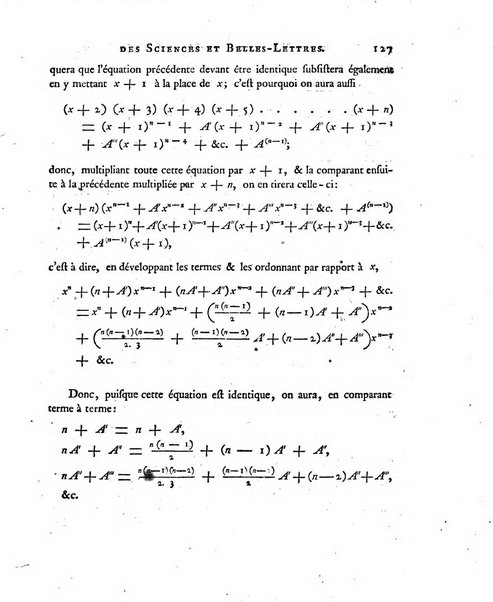 DES SCIENCES ET BELLES-LETTRES. 127
quera que l'équation précédente devant être identique subsistera également
en y mettant x + 1 à la place de x; c'est pourquoi on aura aussi
(x + 2) (x + 3) (x + 4) (x + 5) . . . . . . (x + n)
= (x + 1)^{n-1} + A'(x + 1)^{n-2} + A''(x + 1)^{n-3}
+ A'''(x + 1)^{n-4} + &c. + A^{(n-1)};
donc, multipliant toute cette équation par x + 1, & la comparant ensui-
te à la précédente multipliée par x + n, on en tirera celle-ci:
(x + n)(x^{n-1} + A'x^{n-2} + A''x^{n-3} + A'''x^{n-3} + &c. + A^{(n-1)})
= (x+1)^n + A'(x+1)^{n-1} + A''(x+1)^{n-2} + A'''(x+1)^{n-3} + &c.
+ A^{(n-1)}(x + 1),
c'est à dire, en développant les termes & les ordonnant par rapport à x,
x^n + (n+A')x^{n-1} + (nA'+A'')x^{n-2} + (nA''+A''')x^{n-3} + &c.
= x^n + (n+A')x^{n-1} + (n(n-1)/2 + (n-1)A' + A'')x^{n-2}
+ (n(n-1)(n-2)/2. 3 + (n-1)(n-2)/2 A' + (n-2)A'' + A''')x^{n-3}
+ &c.
Donc, puisque cette équation est identique, on aura, en comparant
terme à terme:
n + A' = n + A',
nA' + A'' = n(n-1)/2 + (n - 1)A' + A'',
nA'' + A''' = n(n-1)(n-2)/2. 3 + (n-1)(n-2)/2 A' + (n-2)A'' + A''',
&c.